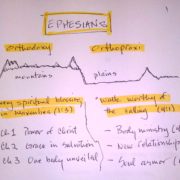 EPHESIANS
Orthodoxy
Orthopraxi
mountains
plains
every spiritual blessing
in Heavenlies (1:3)
walk worthy of
the calling (4:1)
Ch 1 Power of Christ
Ch 2 Grace in salvation
Ch 3 One body unveiled
- Body ministry (4
- New relationship
- Soul armor (